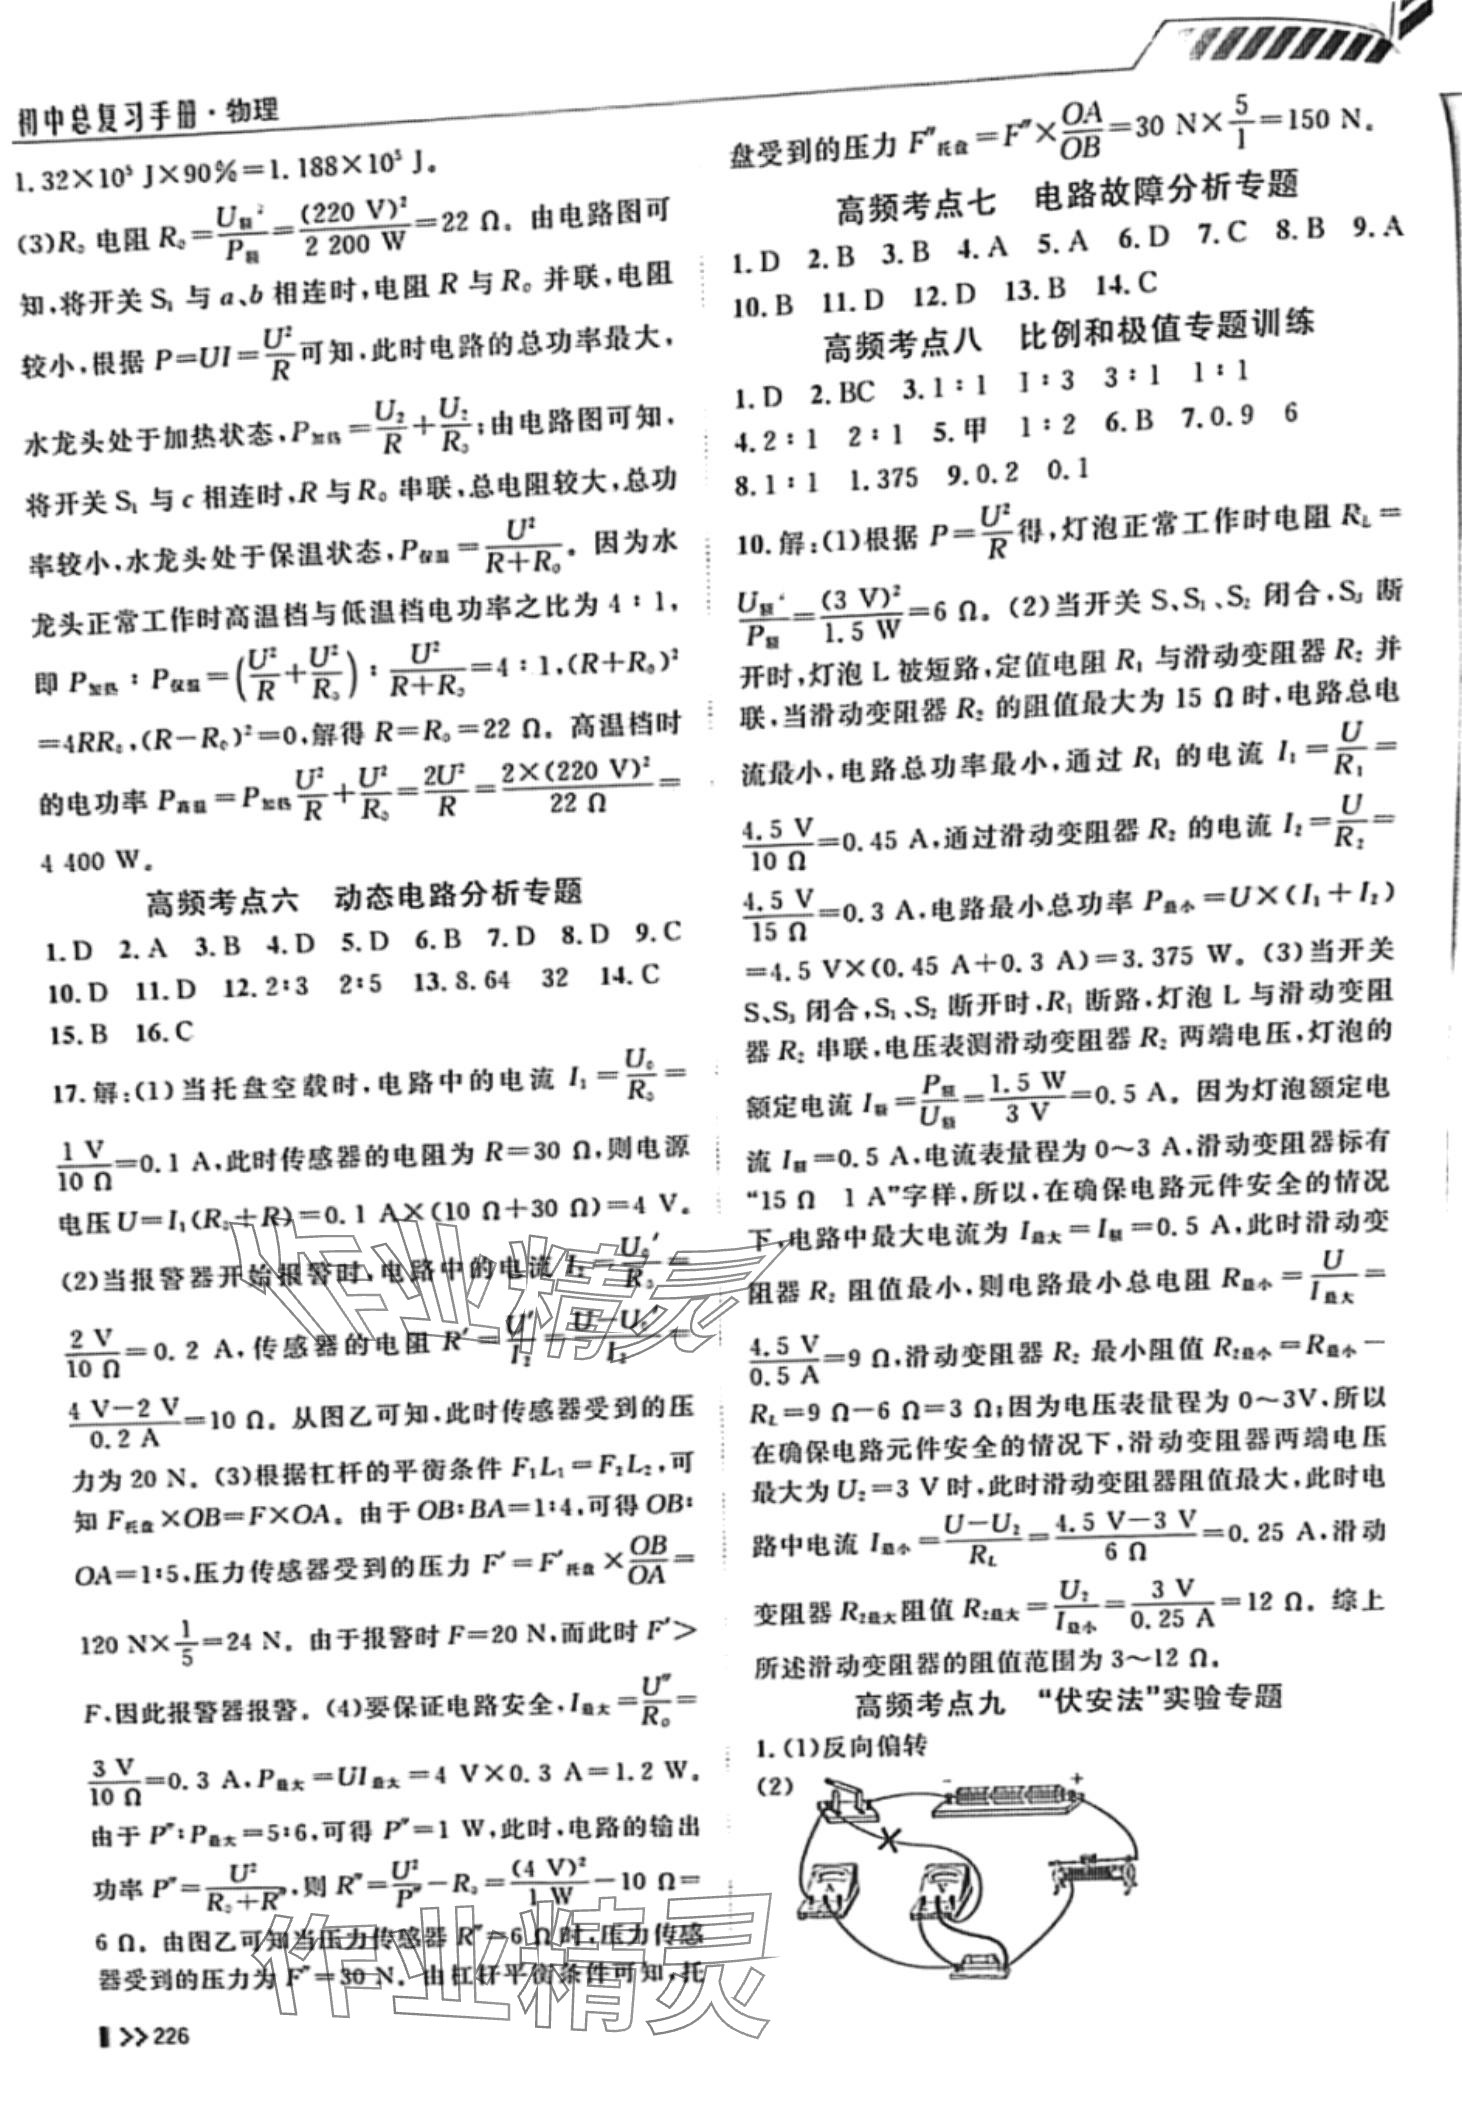 初中总复习手册·物理
1.32×10⁵ J×90%=1.188×10⁵ J。
(3)R₀ 电阻 R₀=U额²/P额=(220 V)²/2 200 W=22 Ω。由电路图可
知,将开关 S₁ 与 a、b 相连时,电阻 R 与 R₀ 并联,电阻
较小,根据 P=UI=U²/R可知,此时电路的总功率最大,
水龙头处于加热状态,P加热=U²/R+U²/R₀;由电路图可知,
将开关 S₁ 与 c 相连时,R 与 R₀ 串联,总电阻较大,总功
率较小,水龙头处于保温状态,P保温=U²/(R+R₀)。因为水
龙头正常工作时高温档与低温档电功率之比为 4∶1,
即 P加热∶P保温=(U²/R+U²/R₀)∶U²/(R+R₀)=4∶1,(R+R₀)²
=4RR₀,(R-R₀)²=0,解得 R=R₀=22 Ω。高温档时
的电功率 P高温=P加热U²/R+U²/R₀=2U²/R=2×(220 V)²/22 Ω=
4 400 W。
高频考点六 动态电路分析专题
1.D 2.A 3.B 4.D 5.D 6.B 7.D 8.D 9.C
10.D 11.D 12.2∶3 2∶5 13.8.64 32 14.C
15.B 16.C
17.解:(1)当托盘空载时,电路中的电流 I₁=U₀/R₀=
1 V/10 Ω=0.1 A,此时传感器的电阻为 R=30 Ω,则电源
电压 U=I₁(R₀+R)=0.1 A×(10 Ω+30 Ω)=4 V。
(2)当报警器开始报警时,电路中的电流 I₂=U₀′/R₀=
2 V/10 Ω=0.2 A,传感器的电阻 R′=U′/I₂=(U-U₀′)/I₂=
(4 V-2 V)/0.2 A=10 Ω。从图乙可知,此时传感器受到的压
力为 20 N。(3)根据杠杆的平衡条件 F₁L₁=F₂L₂,可
知 F托盘×OB=F×OA。由于 OB∶BA=1∶4,可得 OB∶
OA=1∶5,压力传感器受到的压力 F′=F′托盘×OB/OA=
120 N×1/5=24 N。由于报警时 F=20 N,而此时 F′>
F,因此报警器报警。(4)要保证电路安全,I最大=U″/R₀=
3 V/10 Ω=0.3 A,P最大=UI最大=4 V×0.3 A=1.2 W。
由于 P″∶P最大=5∶6,可得 P″=1 W,此时,电路的输出
功率 P″=U²/(R₀+R″),则 R″=U²/P″-R₀=(4 V)²/1 W-10 Ω=
6 Ω。由图乙可知当压力传感器 R″=6 Ω 时,压力传感
器受到的压力为 F″=30 N。由杠杆平衡条件可知,托
>>226
盘受到的压力 F″托盘=F″×OA/OB=30 N×5/1=150 N。
高频考点七 电路故障分析专题
1.D 2.B 3.B 4.A 5.A 6.D 7.C 8.B 9.A
10.B 11.D 12.D 13.B 14.C
高频考点八 比例和极值专题训练
1.D 2.BC 3.1∶1 1∶3 3∶1 1∶1
4.2∶1 2∶1 5.甲 1∶2 6.B 7.0.9 6
8.1∶1 1.375 9.0.2 0.1
10.解:(1)根据 P=U²/R得,灯泡正常工作时电阻 R_L=
U额²/P额=(3 V)²/1.5 W=6 Ω。(2)当开关 S、S₁、S₂ 闭合,S₃ 断
开时,灯泡 L 被短路,定值电阻 R₁ 与滑动变阻器 R₂ 并
联,当滑动变阻器 R₂ 的阻值最大为 15 Ω 时,电路总电
流最小,电路总功率最小,通过 R₁ 的电流 I₁=U/R₁=
4.5 V/10 Ω=0.45 A,通过滑动变阻器 R₂ 的电流 I₂=U/R₂=
4.5 V/15 Ω=0.3 A,电路最小总功率 P最小=U×(I₁+I₂)
=4.5 V×(0.45 A+0.3 A)=3.375 W。(3)当开关
S、S₃ 闭合,S₁、S₂ 断开时,R₁ 断路,灯泡 L 与滑动变阻
器 R₂ 串联,电压表测滑动变阻器 R₂ 两端电压,灯泡的
额定电流 I额=P额/U额=1.5 W/3 V=0.5 A。因为灯泡额定电
流 I额=0.5 A,电流表量程为 0～3 A,滑动变阻器标有
“15 Ω 1 A”字样,所以,在确保电路元件安全的情况
下,电路中最大电流为 I最大=I额=0.5 A,此时滑动变
阻器 R₂ 阻值最小,则电路最小总电阻 R最小=U/I最大=
4.5 V/0.5 A=9 Ω,滑动变阻器 R₂ 最小阻值 R₂最小=R最小-
R_L=9 Ω-6 Ω=3 Ω;因为电压表量程为 0～3V,所以
在确保电路元件安全的情况下,滑动变阻器两端电压
最大为 U₂=3 V 时,此时滑动变阻器阻值最大,此时电
路中电流 I最小=(U-U₂)/R_L=(4.5 V-3 V)/6 Ω=0.25 A,滑动
变阻器 R₂最大阻值 R₂最大=U₂/I最小=3 V/0.25 A=12 Ω。综上
所述滑动变阻器的阻值范围为 3～12 Ω。
高频考点九 “伏安法”实验专题
1.(1)反向偏转
(2)
- +
A V
作业精灵
作业精灵